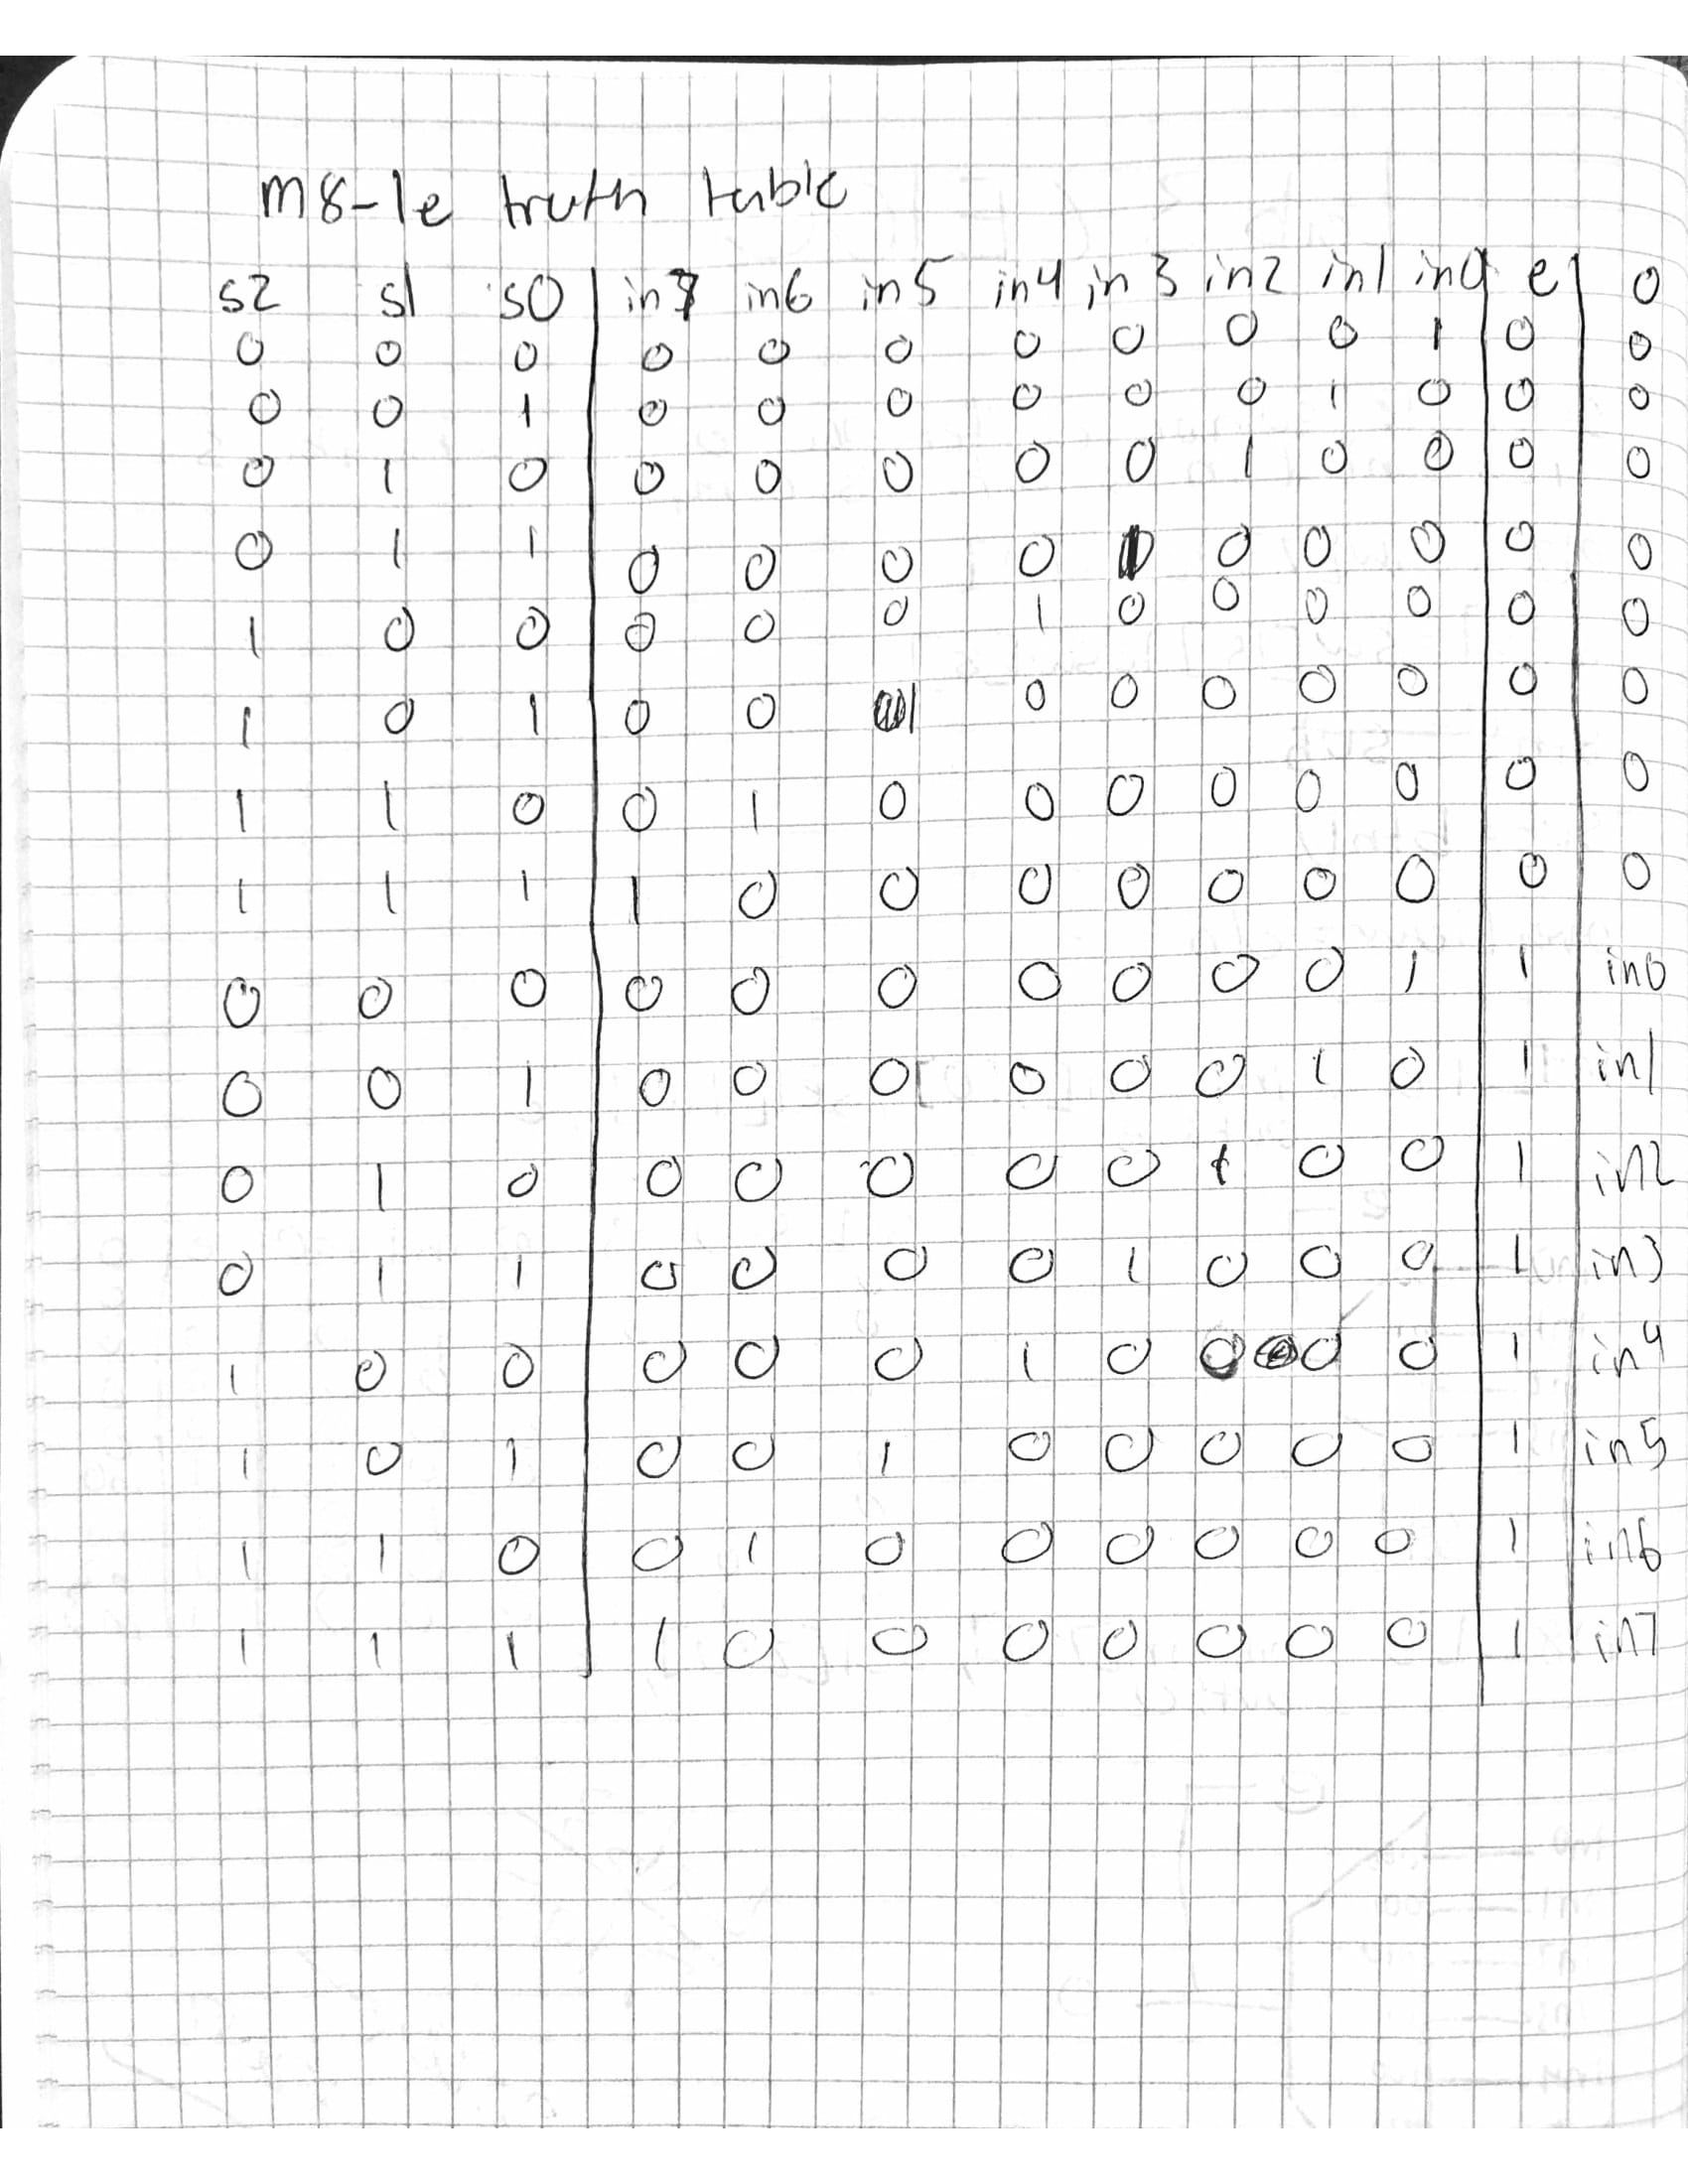 m8-1e truth table
s2 s1 s0 in7 in6 in5 in4 in3 in2 in1 in0 e o
0 0 0 0 0 0 0 0 0 0 1 0 0
0 0 1 0 0 0 0 0 0 1 0 0 0
0 1 0 0 0 0 0 0 1 0 0 0 0
0 1 1 0 0 0 0 1 0 0 0 0 0
1 0 0 0 0 0 1 0 0 0 0 0 0
1 0 1 0 0 1 0 0 0 0 0 0 0
1 1 0 0 1 0 0 0 0 0 0 0 0
1 1 1 1 0 0 0 0 0 0 0 0 0
0 0 0 0 0 0 0 0 0 0 1 1 in0
0 0 1 0 0 0 0 0 0 1 0 1 in1
0 1 0 0 0 0 0 0 1 0 0 1 in2
0 1 1 0 0 0 0 1 0 0 0 1 in3
1 0 0 0 0 0 1 0 0 0 0 1 in4
1 0 1 0 0 1 0 0 0 0 0 1 in5
1 1 0 0 1 0 0 0 0 0 0 1 in6
1 1 1 1 0 0 0 0 0 0 0 1 in7